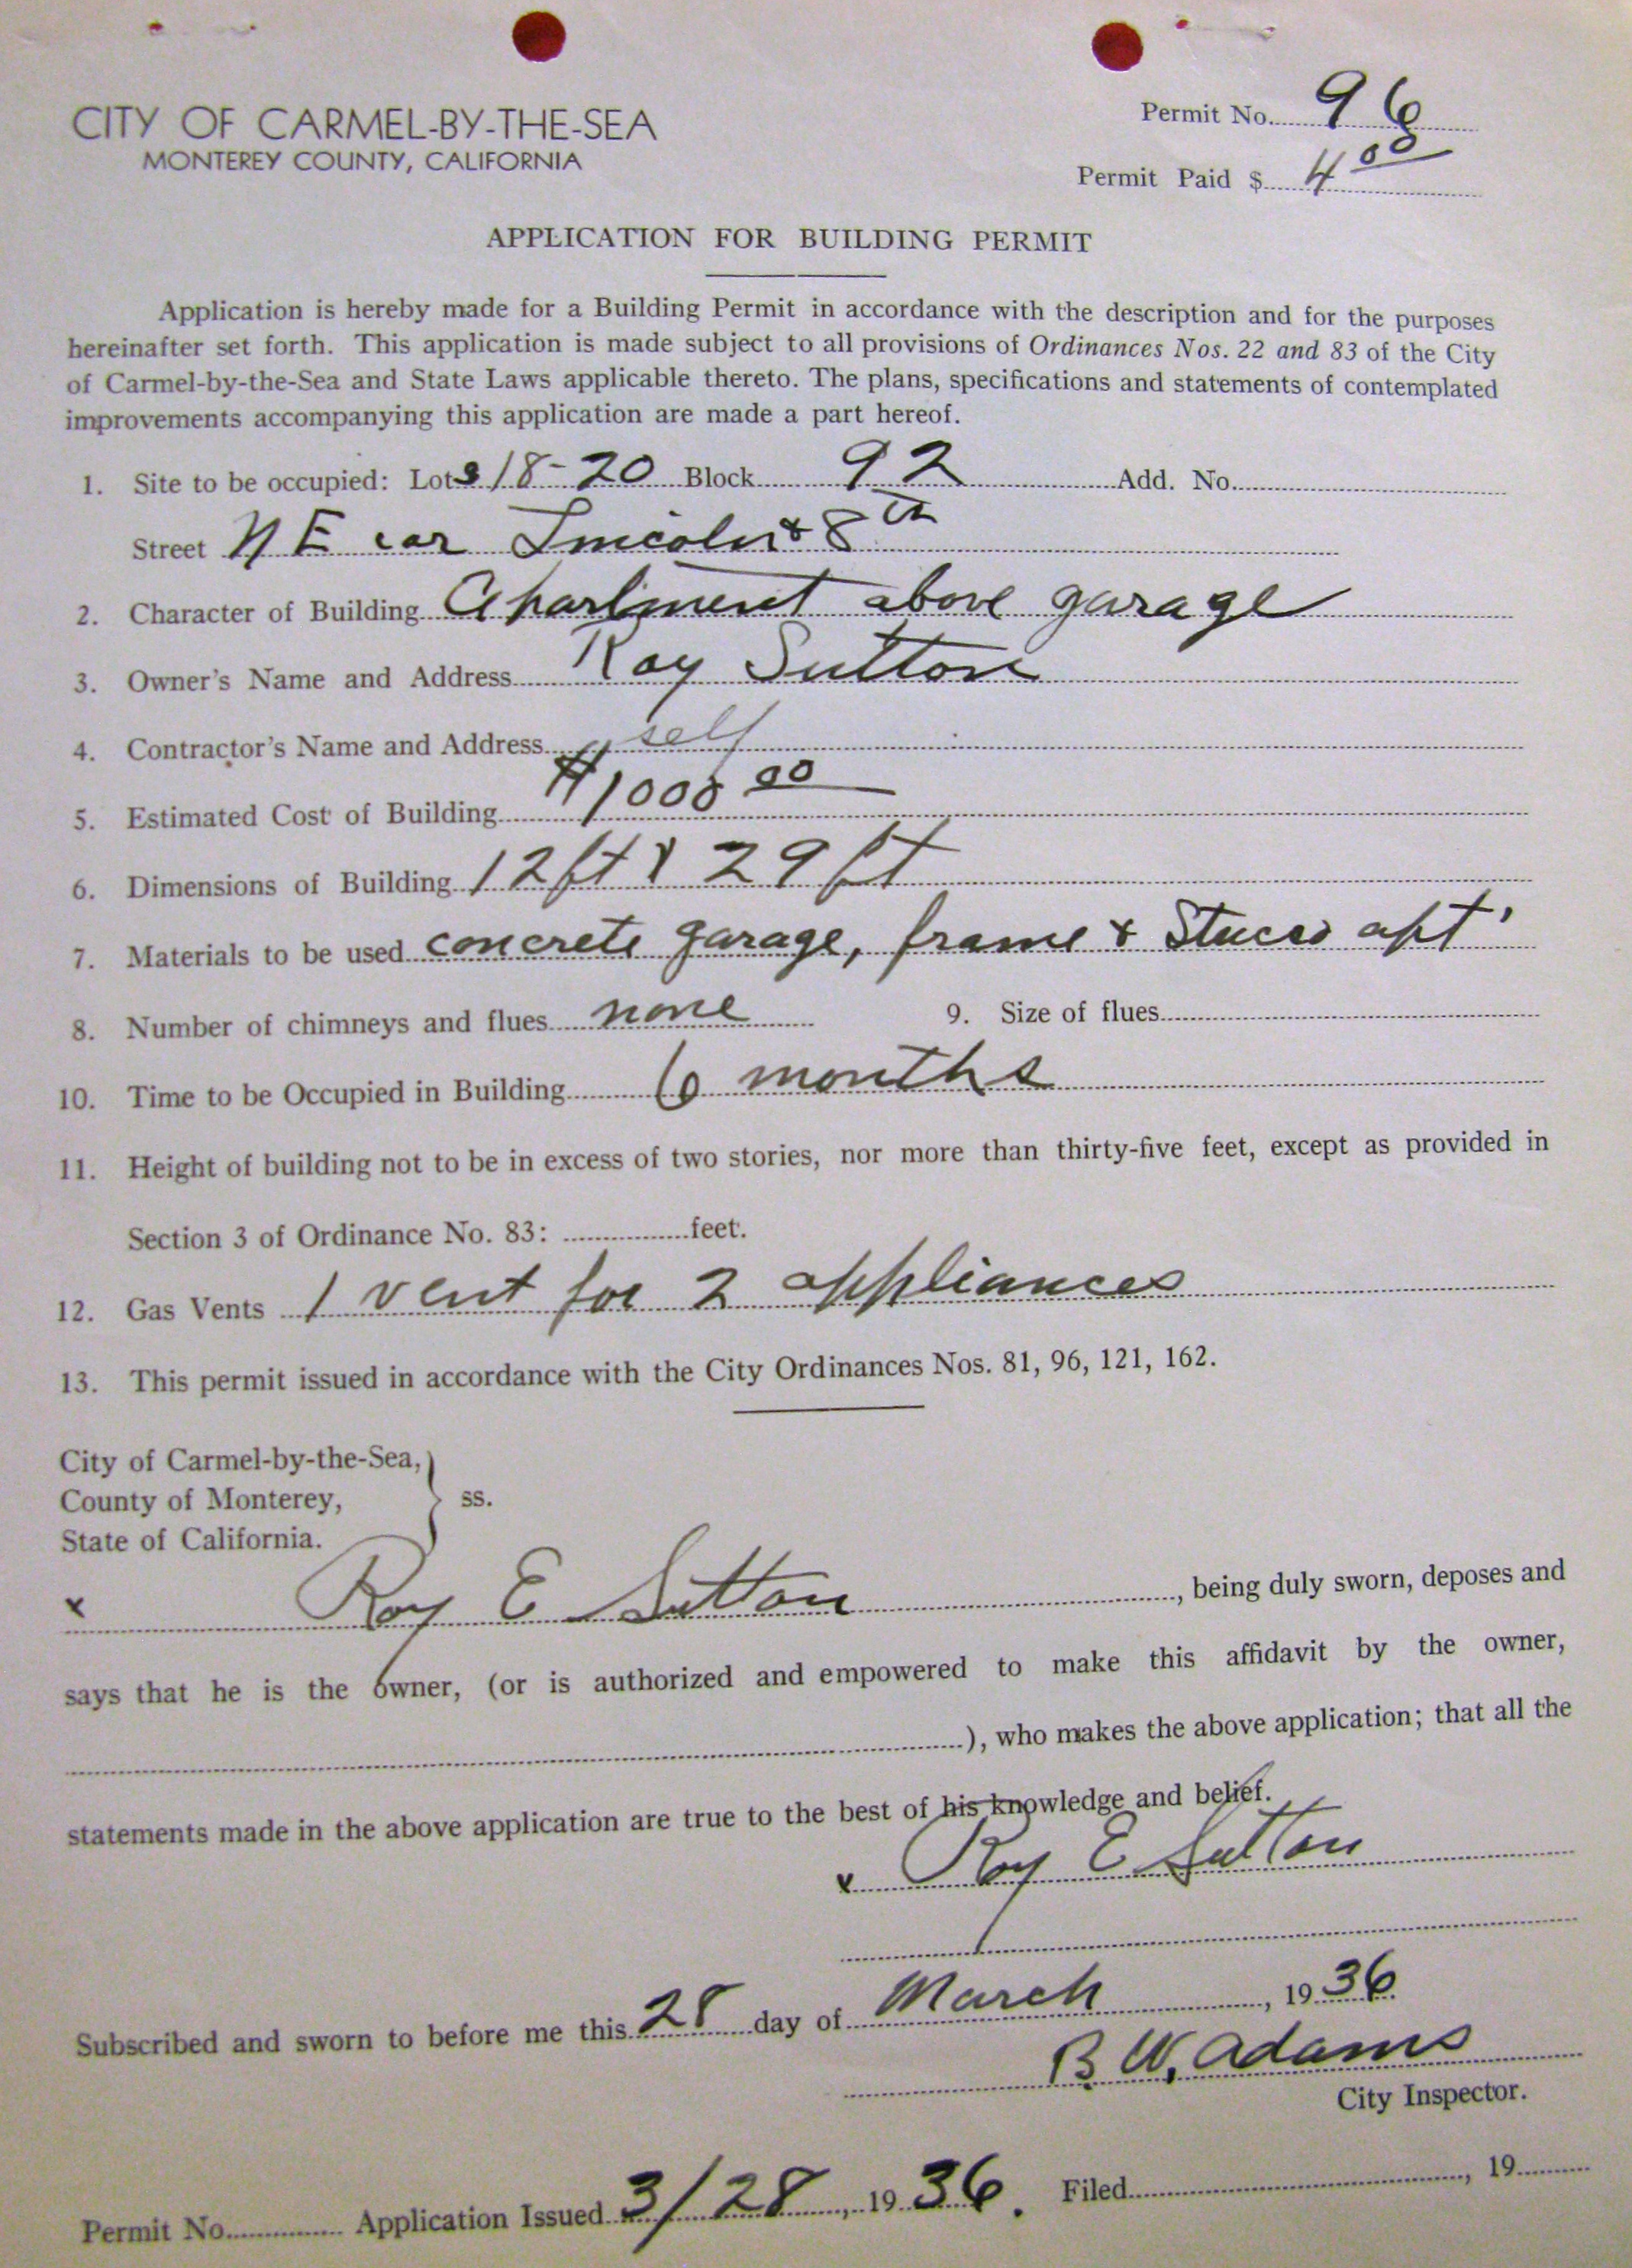 CITY OF CARMEL-BY-THE-SEA
MONTEREY COUNTY, CALIFORNIA
Permit No. 96
Permit Paid $ 4 00
APPLICATION FOR BUILDING PERMIT
Application is hereby made for a Building Permit in accordance with the description and for the purposes
hereinafter set forth. This application is made subject to all provisions of Ordinances Nos. 22 and 83 of the City
of Carmel-by-the-Sea and State Laws applicable thereto. The plans, specifications and statements of contemplated
improvements accompanying this application are made a part hereof.
1. Site to be occupied: Lots 18-20 Block 92 Add. No.
Street N E cor Lincoln & 8th
2. Character of Building Apartment above garage
3. Owner's Name and Address Ray Sutton
4. Contractor's Name and Address self
5. Estimated Cost of Building $1000 00
6. Dimensions of Building 12 ft x 29 ft
7. Materials to be used concrete garage, frame & Stucco apt'
8. Number of chimneys and flues none 9. Size of flues
10. Time to be Occupied in Building 6 months
11. Height of building not to be in excess of two stories, nor more than thirty-five feet, except as provided in
Section 3 of Ordinance No. 83: feet.
12. Gas Vents 1 vent for 2 appliances
13. This permit issued in accordance with the City Ordinances Nos. 81, 96, 121, 162.
City of Carmel-by-the-Sea,
County of Monterey, ss.
State of California.
x Roy E Sutton, being duly sworn, deposes and
says that he is the owner, (or is authorized and empowered to make this affidavit by the owner,
), who makes the above application; that all the
statements made in the above application are true to the best of his knowledge and belief.
x Roy E Sutton
Subscribed and sworn to before me this 28 day of March, 1936
B. W. Adams
City Inspector.
Permit No. Application Issued 3/28, 1936. Filed , 19